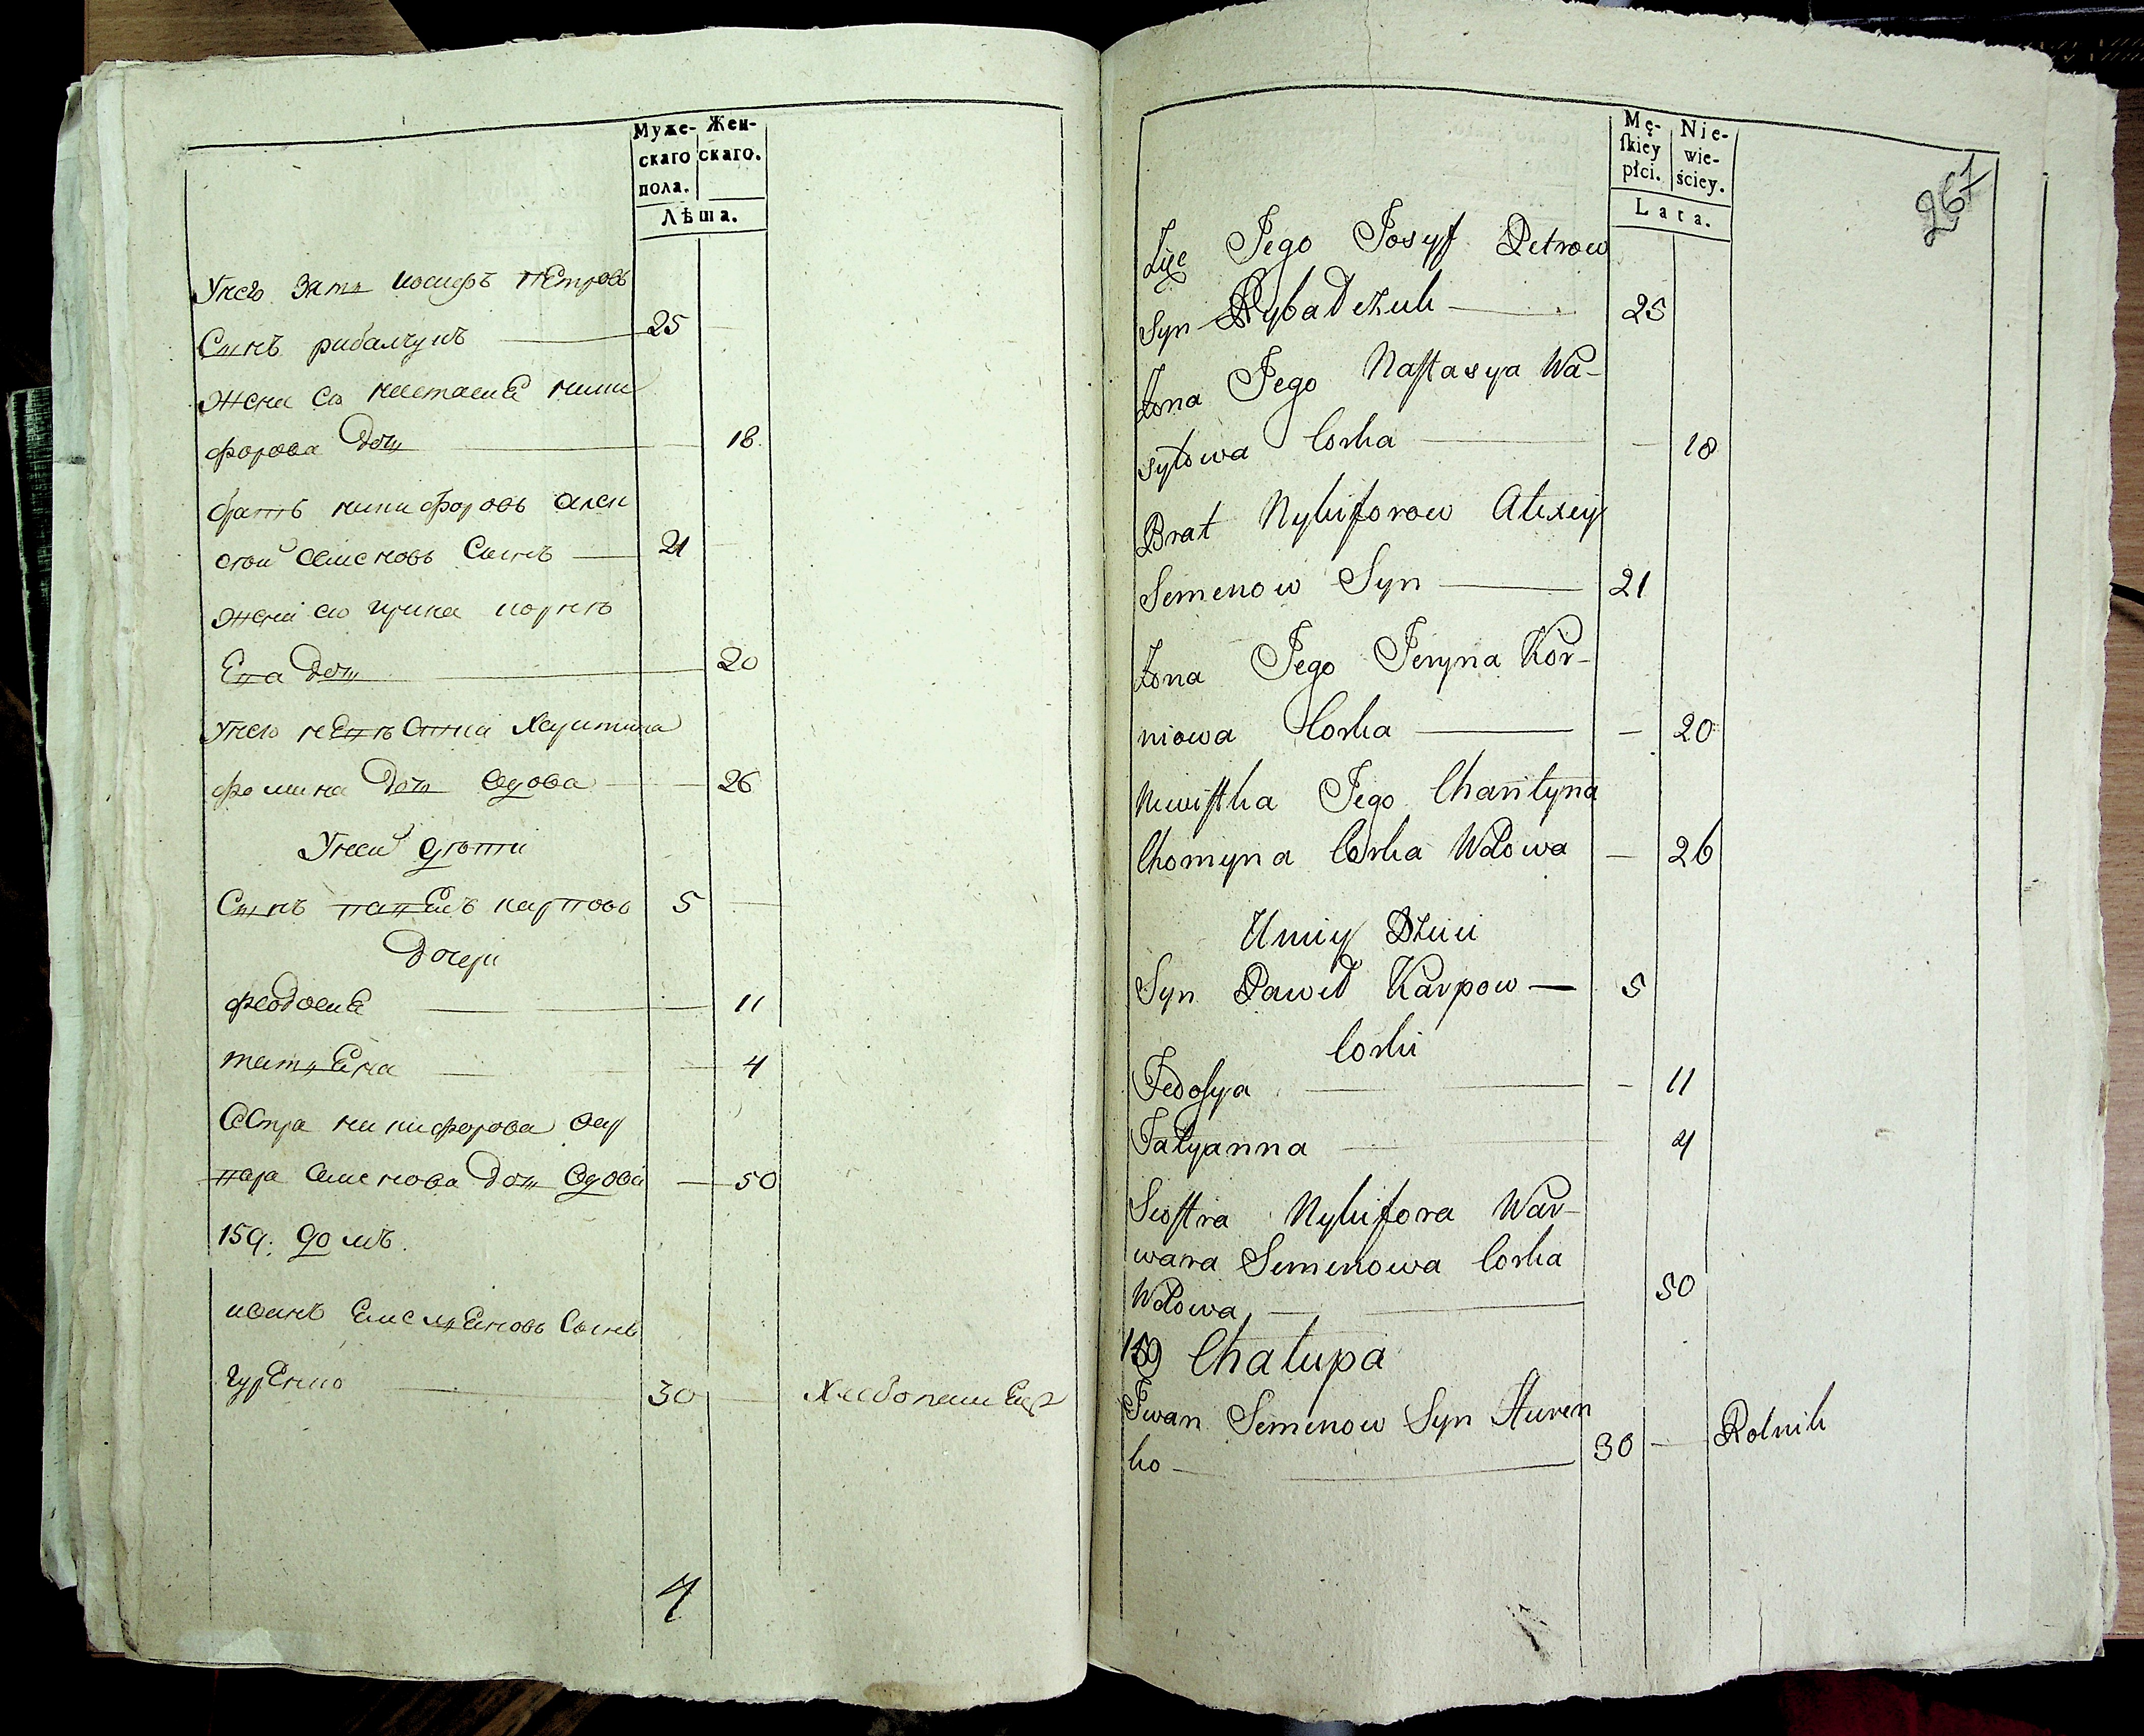 Муже-
скаго
пола.
Жен-
скаго.
Лѣта.
Унего зать иосифъ петровъ
Синъ рибалчукъ 25
жена его настасиѣ ники
форова дочь 18
братъ никифоровъ алек
сѣи семеновъ синъ 21
жена его ирина корнѣ
Ева дочь 20
Унего невѣстка Харитина
фомина дочь вдова 26
Унеи дѣти
Синъ павелъ карповъ 5
Дочери
феодосиѣ 11
татиѣна 4
Сестра никифорова вар
вара семенова дочь вдова 50
159: домъ.
иванъ семеновъ синъ
гуренко 30 Хлебопашецъ
4
Mę-
ſkiey
płci.
Nie-
wie-
ściey.
Lata.
267
Zięć Jego Josyf Petrow
Syn Rybadczuk 25
Żona Jego Naſtasya Wa-
syłowa Corka 18
Brat Nykiforow Alexiy
Semenow Syn 21
Żona Jego Jeryna Kor-
niowa Corka 20
Niewiſtka Jego Charitÿna
Chomyna Corka Wdowa 26
U niey Dzieci
Syn Paweł Karpow 5
Corki
Fedoſya 11
Tatyanna 4
Sioſtra Nykifora War-
wara Semenowa Corka
Wdowa 50
159 Chałupa
Jwan Semenow Syn Huren
ko 30 Rolnik